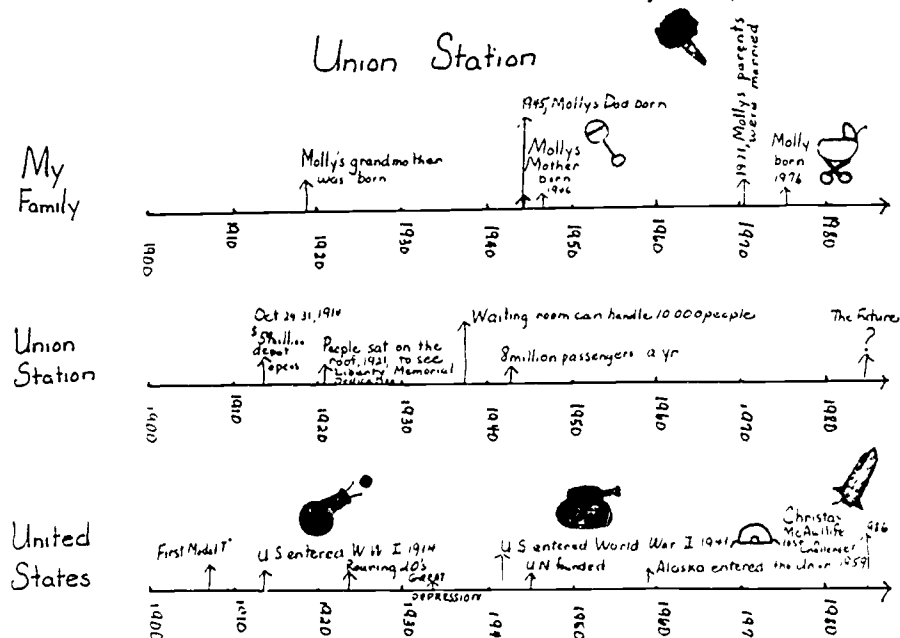 Union Station
My
Family
Molly's grandmother
was born
1945, Mollys Dad born
Mollys
Mother
born
1946
1971, Mollys parents
were married
Molly
born
1976
1900 1910 1920 1930 1940 1950 1960 1970 1980
Union
Station
Oct 29 31, 1914
depot
opens
People sat on the
roof, 1921, to see
Liberty Memorial
Waiting room can handle 10 000 people
8 million passengers a yr
The Future
?
1900 1910 1920 1930 1940 1950 1960 1970 1980
United
States
First Model T
U S entered W W I 1914
Roaring 20's
Great
Depression
U S entered World War I 1941
U N founded
Alaska entered the Union 1959
Christa
McAuliffe
lost
Challenger
986
1900 1910 1920 1930 194 1950 1960 197 1980